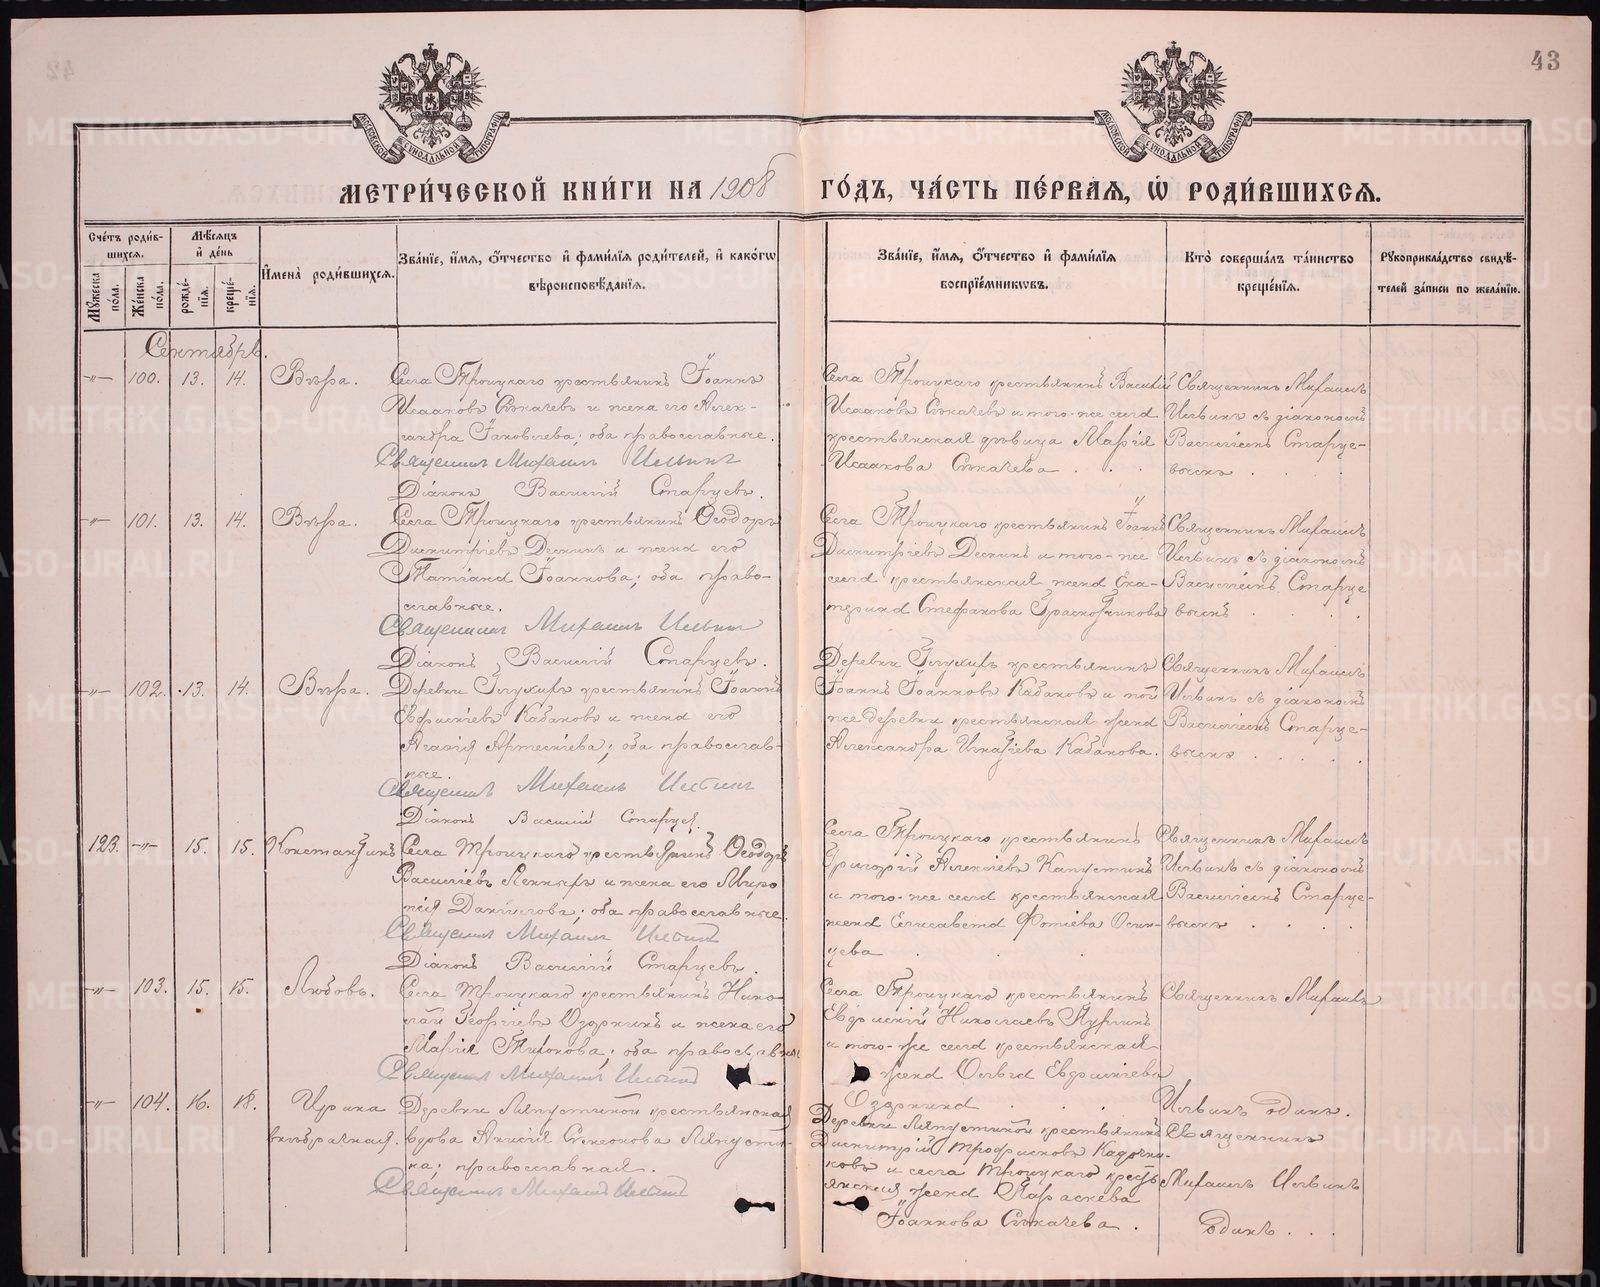 43
МОСКОВСКОЙ СУНОДАЛЬНОЙ ТИПОГРАФІИ
МОСКОВСКОЙ СУНОДАЛЬНОЙ ТИПОГРАФІИ
МЕТРИ́ЧЕСКОЙ КНИ́ГИ НА 1908 ГО́ДЪ, ЧА́СТЬ ПЕ́РВАЯ, Ѡ РОДИ́ВШИХСЯ.
Сче́тъ роди́в-
шихся.
Мꙋ́жеска по́ла.
Же́нска по́ла.
Мѣ́сяцъ
и́ де́нь
рожде́-
нїя.
креще́-
нїя.
И̓мена̀ роди́вшихся.
Зва́нїе, и́мя, ѻ́тчество и́ фами́лїя роди́телей, и́ како́гѡ
вѣроисповѣ́данїя.
Зва́нїе, и́мя, ѻ́тчество и́ фами́лїя
воспрїе́мникѡвъ.
Кто̀ соверша́лъ та́инство
креще́нїя.
Рꙋкоприкла́дство свидѣ́-
телей за́писи по жела́нїю.
Сентябрь.
-"- 100. 13. 14. Вѣра.
Села Троицкаго крестьянинъ Іоаннъ
Исааковъ Сѣкачевъ и жена его Алек-
сандра Іаковлева; оба православные.
Священникъ Михаилъ Ильинъ
Діаконъ Василій Старцевъ.
Села Троицкаго крестьянинъ Василій
Исааковъ Сѣкачевъ и того-же села
крестьянская дѣвица Марія
Исаакова Сѣкачева . . .
Священникъ Михаилъ
Ильинъ съ діакономъ
Василіемъ Старце-
вымъ . .
-"- 101. 13. 14. Вѣра.
Села Троицкаго крестьянинъ Ѳеодоръ
Димитріевъ Деминъ и жена его
Татіана Іоаннова; оба право-
славные.
Священникъ Михаилъ Ильинъ
Діаконъ Василій Старцевъ.
Села Троицкаго крестьянинъ Іоаннъ
Димитріевъ Деминъ и того-же
села крестьянская жена Ека-
терина Стефанова
Священникъ Михаилъ
Ильинъ съ діакономъ
Василіемъ Старце
вымъ . .
-"- 102. 13. 14. Вѣра.
Деревни Глухихъ крестьянинъ Іоаннъ
Ефриміевъ Кабаковъ и жена его
Агафія Артеміева; оба православ-
ные.
Священникъ Михаилъ Ильинъ
Діаконъ Василій Старцев
Деревни Глухихъ крестьянинъ
Іоаннъ Іоанновъ Кабаковъ и той
же деревни крестьянская жена
Александра Игнатіева Кабакова.
Священникъ Михаилъ
Ильинъ съ діакономъ
Василіемъ Старце-
вымъ . . . .
123. -"- 15. 15. Константинъ
Села Троицкаго крестьянинъ Ѳеодоръ
Василіевъ и жена его
Даніилова; оба православные.
Священникъ Михаилъ Ильинъ
Діаконъ Василій Старцевъ.
Села Троицкаго крестьянинъ
Григорій Алексіевъ Капустинъ
и того-же села крестьянская
жена Елисавета Фотіева Осин-
цева . . .
Священникъ Михаилъ
Ильинъ съ діакономъ
Василіемъ Старце-
вымъ . . . .
-"- 103. 15. 15. Любовь.
Села Троицкаго крестьянинъ Нико-
лай Георгіевъ Озорнинъ и жена его
Марія Тихонова; оба православны
Священникъ Михаилъ Ильинъ
Села Троицкаго крестьянинъ
Николаевъ
и того-же села крестьянская
жена Ольга
Озорнина . . .
Священникъ Михаилъ
Ильинъ одинъ.
-"- 104. 16. 18. Ирина
внѣбрачная.
Деревни Ляпустиной крестьянская
вдова Анисія Симеонова Ляпусти-
на; православная.
Священникъ Михаилъ Ильинъ
Деревни Ляпустиной крестьянинъ
Димитрій Трофимовъ Кадочни-
ковъ и села Троицкаго кресть
янская жена Параскева
Іоаннова Сѣкачева .
Священникъ
Михаилъ Ильинъ
Одинъ . . .
METRIKI.GASO-URAL.RU